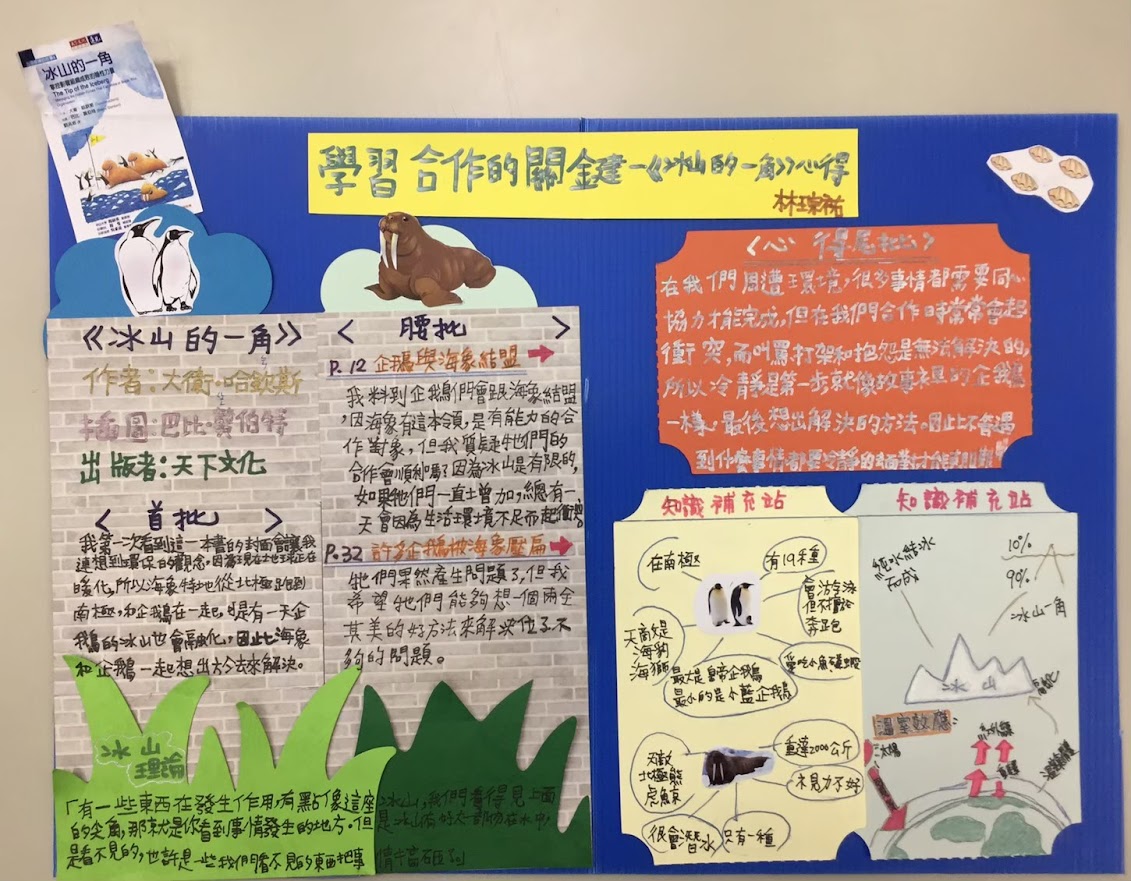 冰山的一角
The Tip of the Iceberg
學習合作的關鍵-《冰山的一角》心得
《冰山的一角》
作者:大衛·哈欽斯
插圖:巴比·龔伯特
出版者:天下文化
〈首批〉
我第一次看到這一本書的封面會讓我
連想到環保的觀念。因為現在地球正在
暖化,所以海象特地從北極跑到
南極,和企鵝在一起,可是有一天企
鵝的冰山也會融化,因此海象
和企鵝一起想出大公去來解決。
〈腰批〉
P.12 企鵝與海象結盟
我料到企鵝們會跟海象結盟
,因海象有這本領,是有能力的合
作對象,但我質疑牠們的
合作會順利嗎?因為冰山是有限的,
如果牠們一直增加,總有一
天會因為生活環境不足而起衝突。
P.32 許多企鵝被海象壓扁
牠們果然產生問題了,但我
希望牠們能夠想一個兩全
其美的好方法來解決位子不
夠的問題。
〈心得尾批〉
在我們周遭環境,很多事情都需要同心
協力才能完成,但在我們合作時常常會起
衝突,而叫罵打架和抱怨是無法解決的,
所以冷靜是第一步就像故事裡的企鵝
一樣,最後想出解決的方法。因此不管遇
到什麼事情都要冷靜的面對才能
知識補充站
在南極
有19種
會游泳
但不擅於
奔跑
天敵是
海豹
海獅
愛吃小魚
最大是皇帝企鵝
最小的是小藍企鵝
天敵
北極熊
虎鯨
重達2000公斤
不見力不好
很會潛水
只有一種
知識補充站
純水結冰
而成
10%
90%
冰山一角
冰山
溫室效應
太陽
冰山
理論
「有一些東西在發生作用,有點像這座冰山,我們看得見上面
的尖角,那就是你看到事情發生的地方。但是冰山有好大一部份在水中,
是看不見的,也許是一些我們看不見的東西把事情